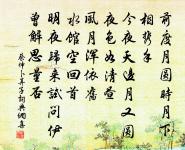 前度月圓時月下
相攜手
今夜天邊月又圓
夜色如清晝
風月渾依舊
水館空回首
明夜歸來試問伊
曾解思量否
蔡伸卜算子詞典網書